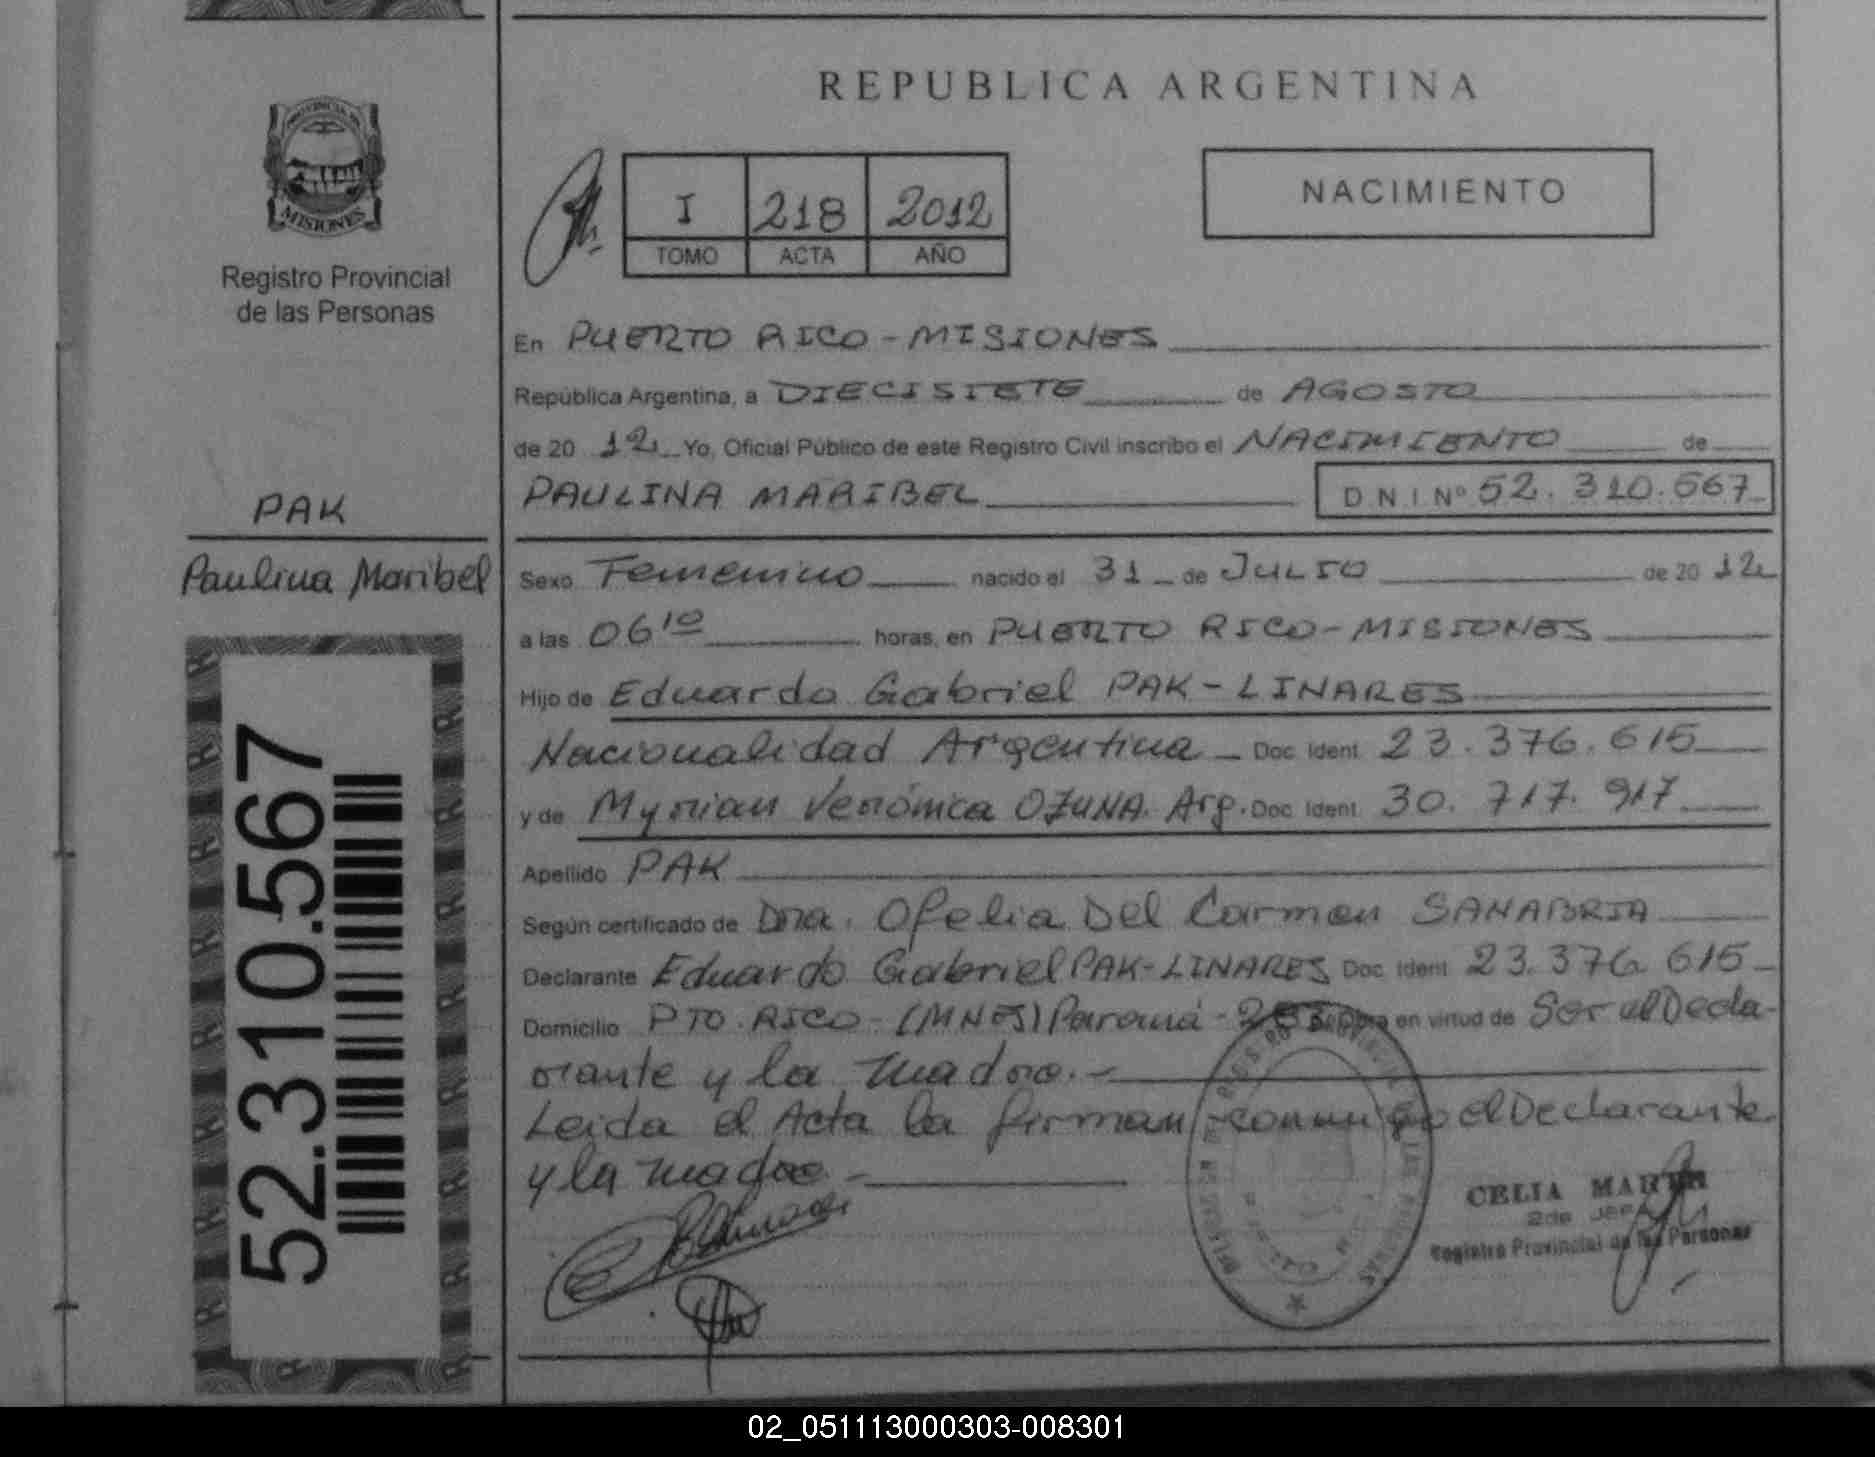 REPUBLICA ARGENTINA
PROVINCIA DE
MISIONES
Registro Provincial
de las Personas
I 218 2012
TOMO ACTA AÑO
NACIMIENTO
En PUERTO RICO - MISIONES
República Argentina, a DIECISIETE de AGOSTO
de 20 12 Yo, Oficial Público de este Registro Civil inscribo el NACIMIENTO de
PAULINA MARIBEL D.N.I. Nº 52.310.567
PAK
Paulina Maribel
Sexo Femenino nacido el 31 de JULIO de 20 12
a las 06 10 horas, en PUERTO RICO - MISIONES
Hijo de Eduardo Gabriel PAK - LINARES
Nacionalidad Argentina - Doc. Ident. 23.376.615
y de Myrian Verónica OZUNA. Arg. Doc. Ident. 30.717.917
Apellido PAK
Según certificado de Dra. Ofelia Del Carmen SANABRIA
Declarante Eduardo Gabriel PAK - LINARES Doc. Ident. 23.376.615
Domicilio PTO. RICO - (MNES) Paraná - en virtud de Ser el Decla-
rante y la madre. -
Leida el Acta la firman conmigo el Declarante
y la madre -
52.310.567
CELIA
2da JEFA
Registro Provincial de las Personas
02_051113000303-008301